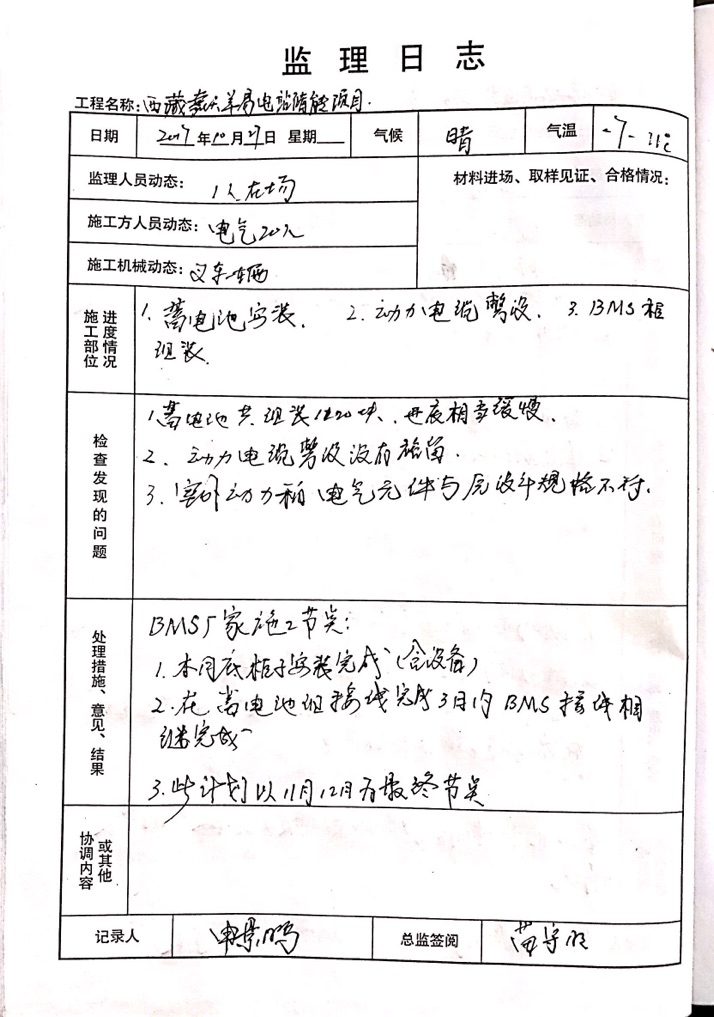 监理日志
工程名称：西藏羊易电站储能项目.
日期 2017年10月27日 星期 气候 晴 气温 -7-11℃
监理人员动态： 1人在场
材料进场、取样见证、合格情况：
施工方人员动态： 电气20人
施工机械动态： 叉车一辆
进度情况
施工部位
1. 蓄电池安装. 2. 动力电缆敷设. 3. BMS柜
组装.
检查发现的问题
1. 蓄电池共组装1220块、进度相当缓慢.
2、动力电缆敷设没有
3. 室外动力箱电气元件与原设计规格不符.
处理措施、意见、结果
BMS厂家施工节点：
1. 本月底柜子安装完成（含设备）
2. 在蓄电池组接线完成3日内BMS接线相
继完成
3. 此计划以11月12日为最终节点
或其他
协调内容
记录人 申景鸣 总监签阅